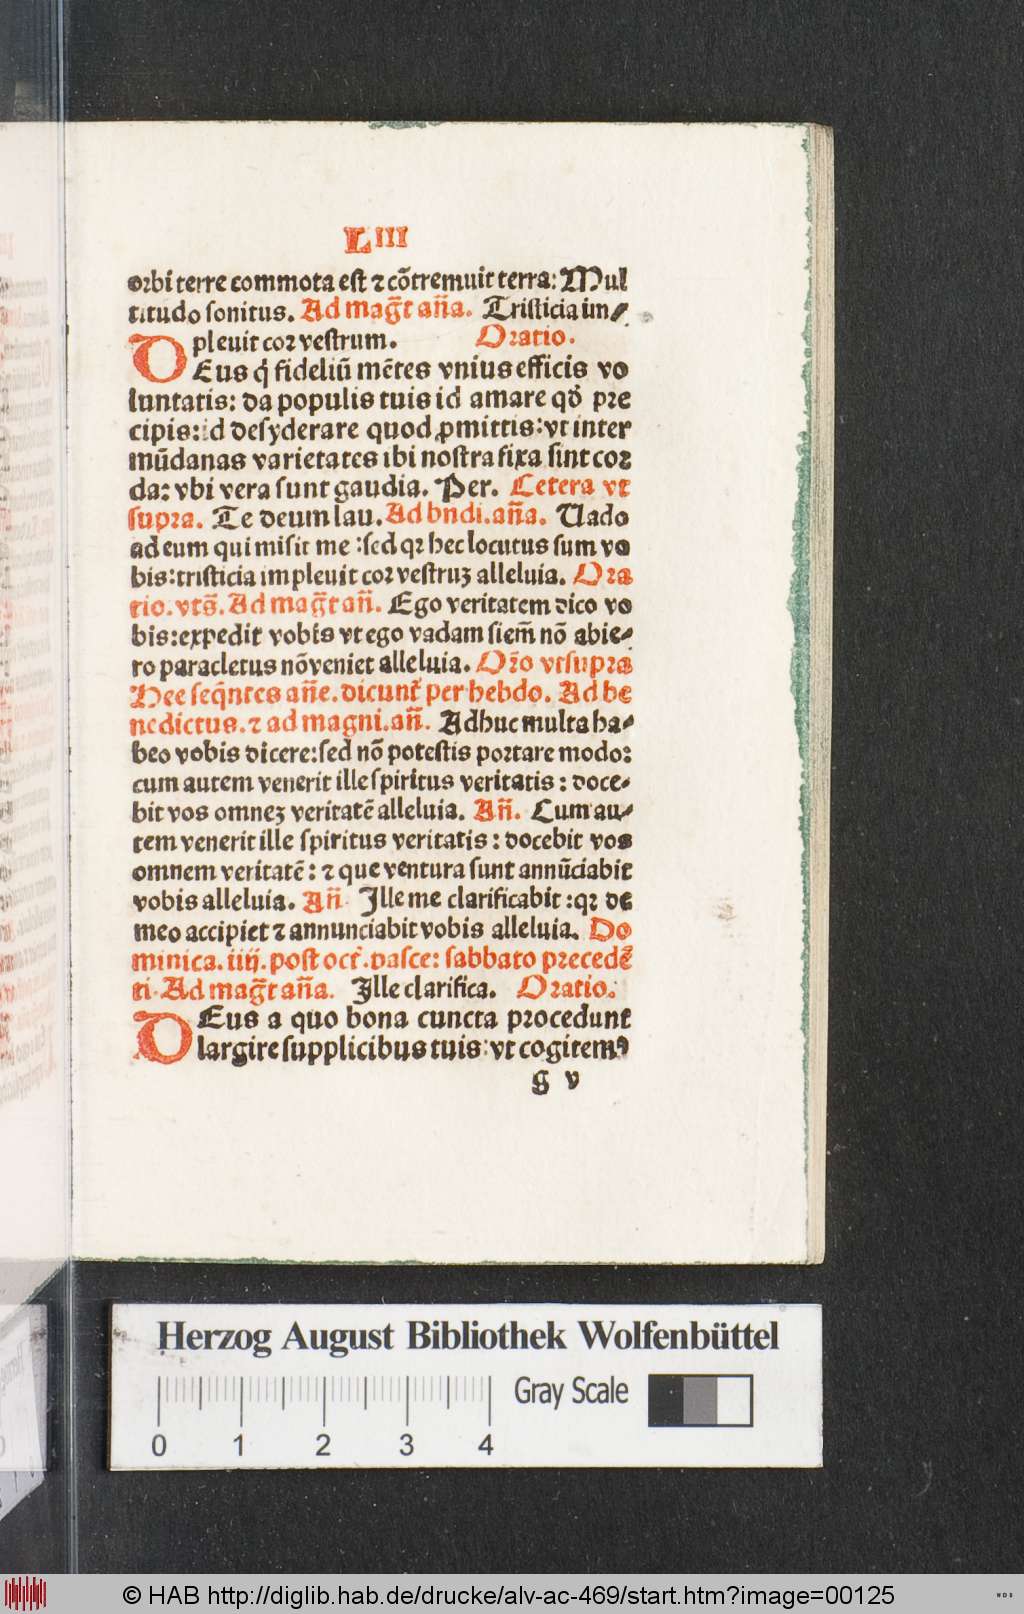 LIII
orbi terre commota est ⁊ cõtremuit terra: Mul
titudo sonitus. Ad mag̃t añа. Tristicia im⸗
pleuit cor vestrum. Oratio.
DEus q̇ fideliũ mẽtes vnius efficis vo
luntatis: da populis tuis id amare qḋ pre
cipis: id desyderare quod ꝓmittis: vt inter
mũdanas varietates ibi nostra fixa sint cor
da: vbi vera sunt gaudia. Per. Cetera vt
supra. Te deum lau. Ad bndi. añа. Uado
ad eum qui misit me: sed qꝛ hec locutus sum vo
bis: tristicia impleuit cor vestruꝫ alleluia. Ora
tio. vts̃. Ad mag̃t añ. Ego veritatem dico vo
bis: expedit vobis vt ego vadam si em̃ nõ abie⸗
ro paracletus nõ veniet alleluia. Or̃o vt supra
Hee seq̃ntes añe. dicunt᷑ per hebdo. Ad be
nedictus. ⁊ ad magni. añ. Adhuc multa ha⸗
beo vobis dicere: sed nõ potestis portare modo:
cum autem venerit ille spiritus veritatis: doce⸗
bit vos omneꝫ veritatẽ alleluia. Añ. Cum au⸗
tem venerit ille spiritus veritatis: docebit vos
omnem veritatẽ: ⁊ que ventura sunt annũciabit
vobis alleluia. Añ. Ille me clarificabit: qꝛ de
meo accipiet ⁊ annunciabit vobis alleluia. Do
minica. iiij. post oct̉. pasce: sabbato precedẽ
ti. Ad mag̃t añа. Ille clarifica. Oratio.
DEus a quo bona cuncta procedunt
largire supplicibus tuis: vt cogitemꝰ
g v
Herzog August Bibliothek Wolfenbüttel
Gray Scale
0 1 2 3 4
© HAB http://diglib.hab.de/drucke/alv-ac-469/start.htm?image=00125